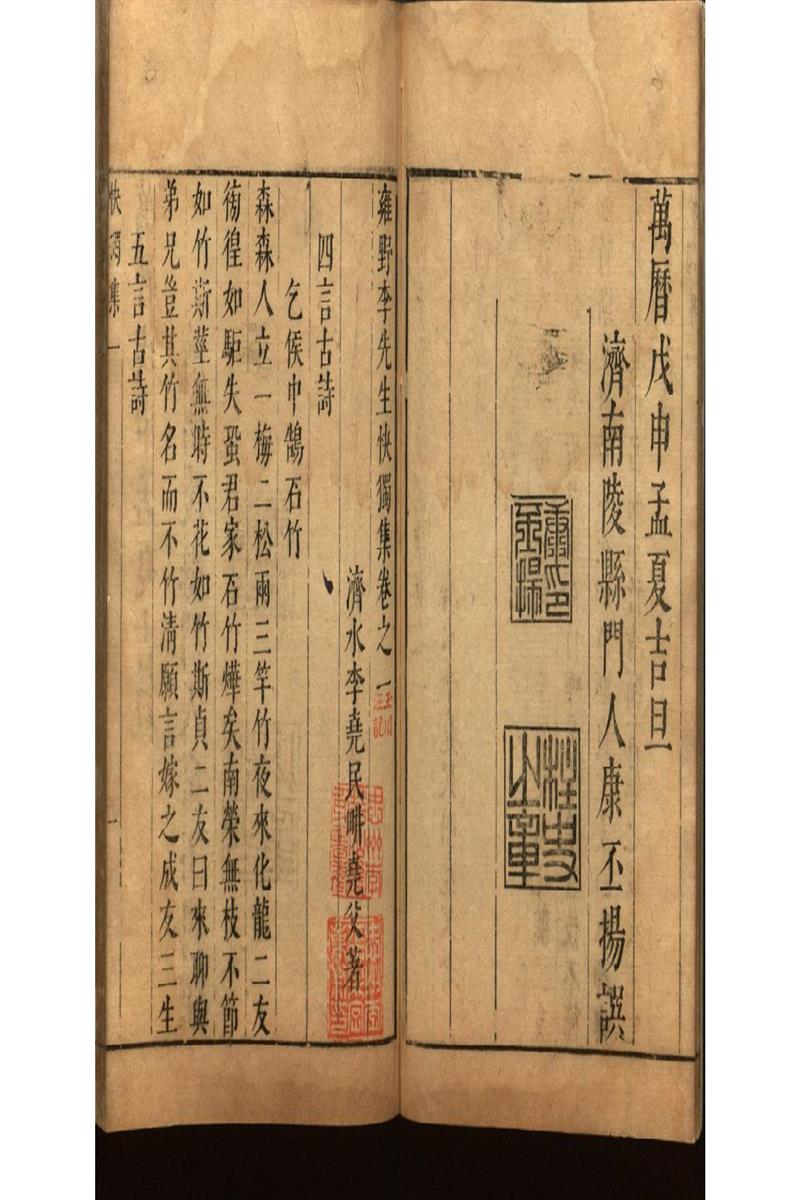 萬曆戊申孟夏吉旦
濟南陵縣門人康丕揚譔
康丕揚印
柱史之章
雍野李先生快獨集卷之一
濟水李堯民畊堯父著
四言古詩
乞侯中鵠石竹
森森人立一梅二松兩三竿竹夜來化龍二友
徬徨如駏失蛩君家石竹燁矣南榮無枝不節
如竹斯莖無時不花如竹斯貞二友曰來聊與
弟兄豈其竹名而不竹清願言嫁之成友三生
五言古詩
快獨集一
一